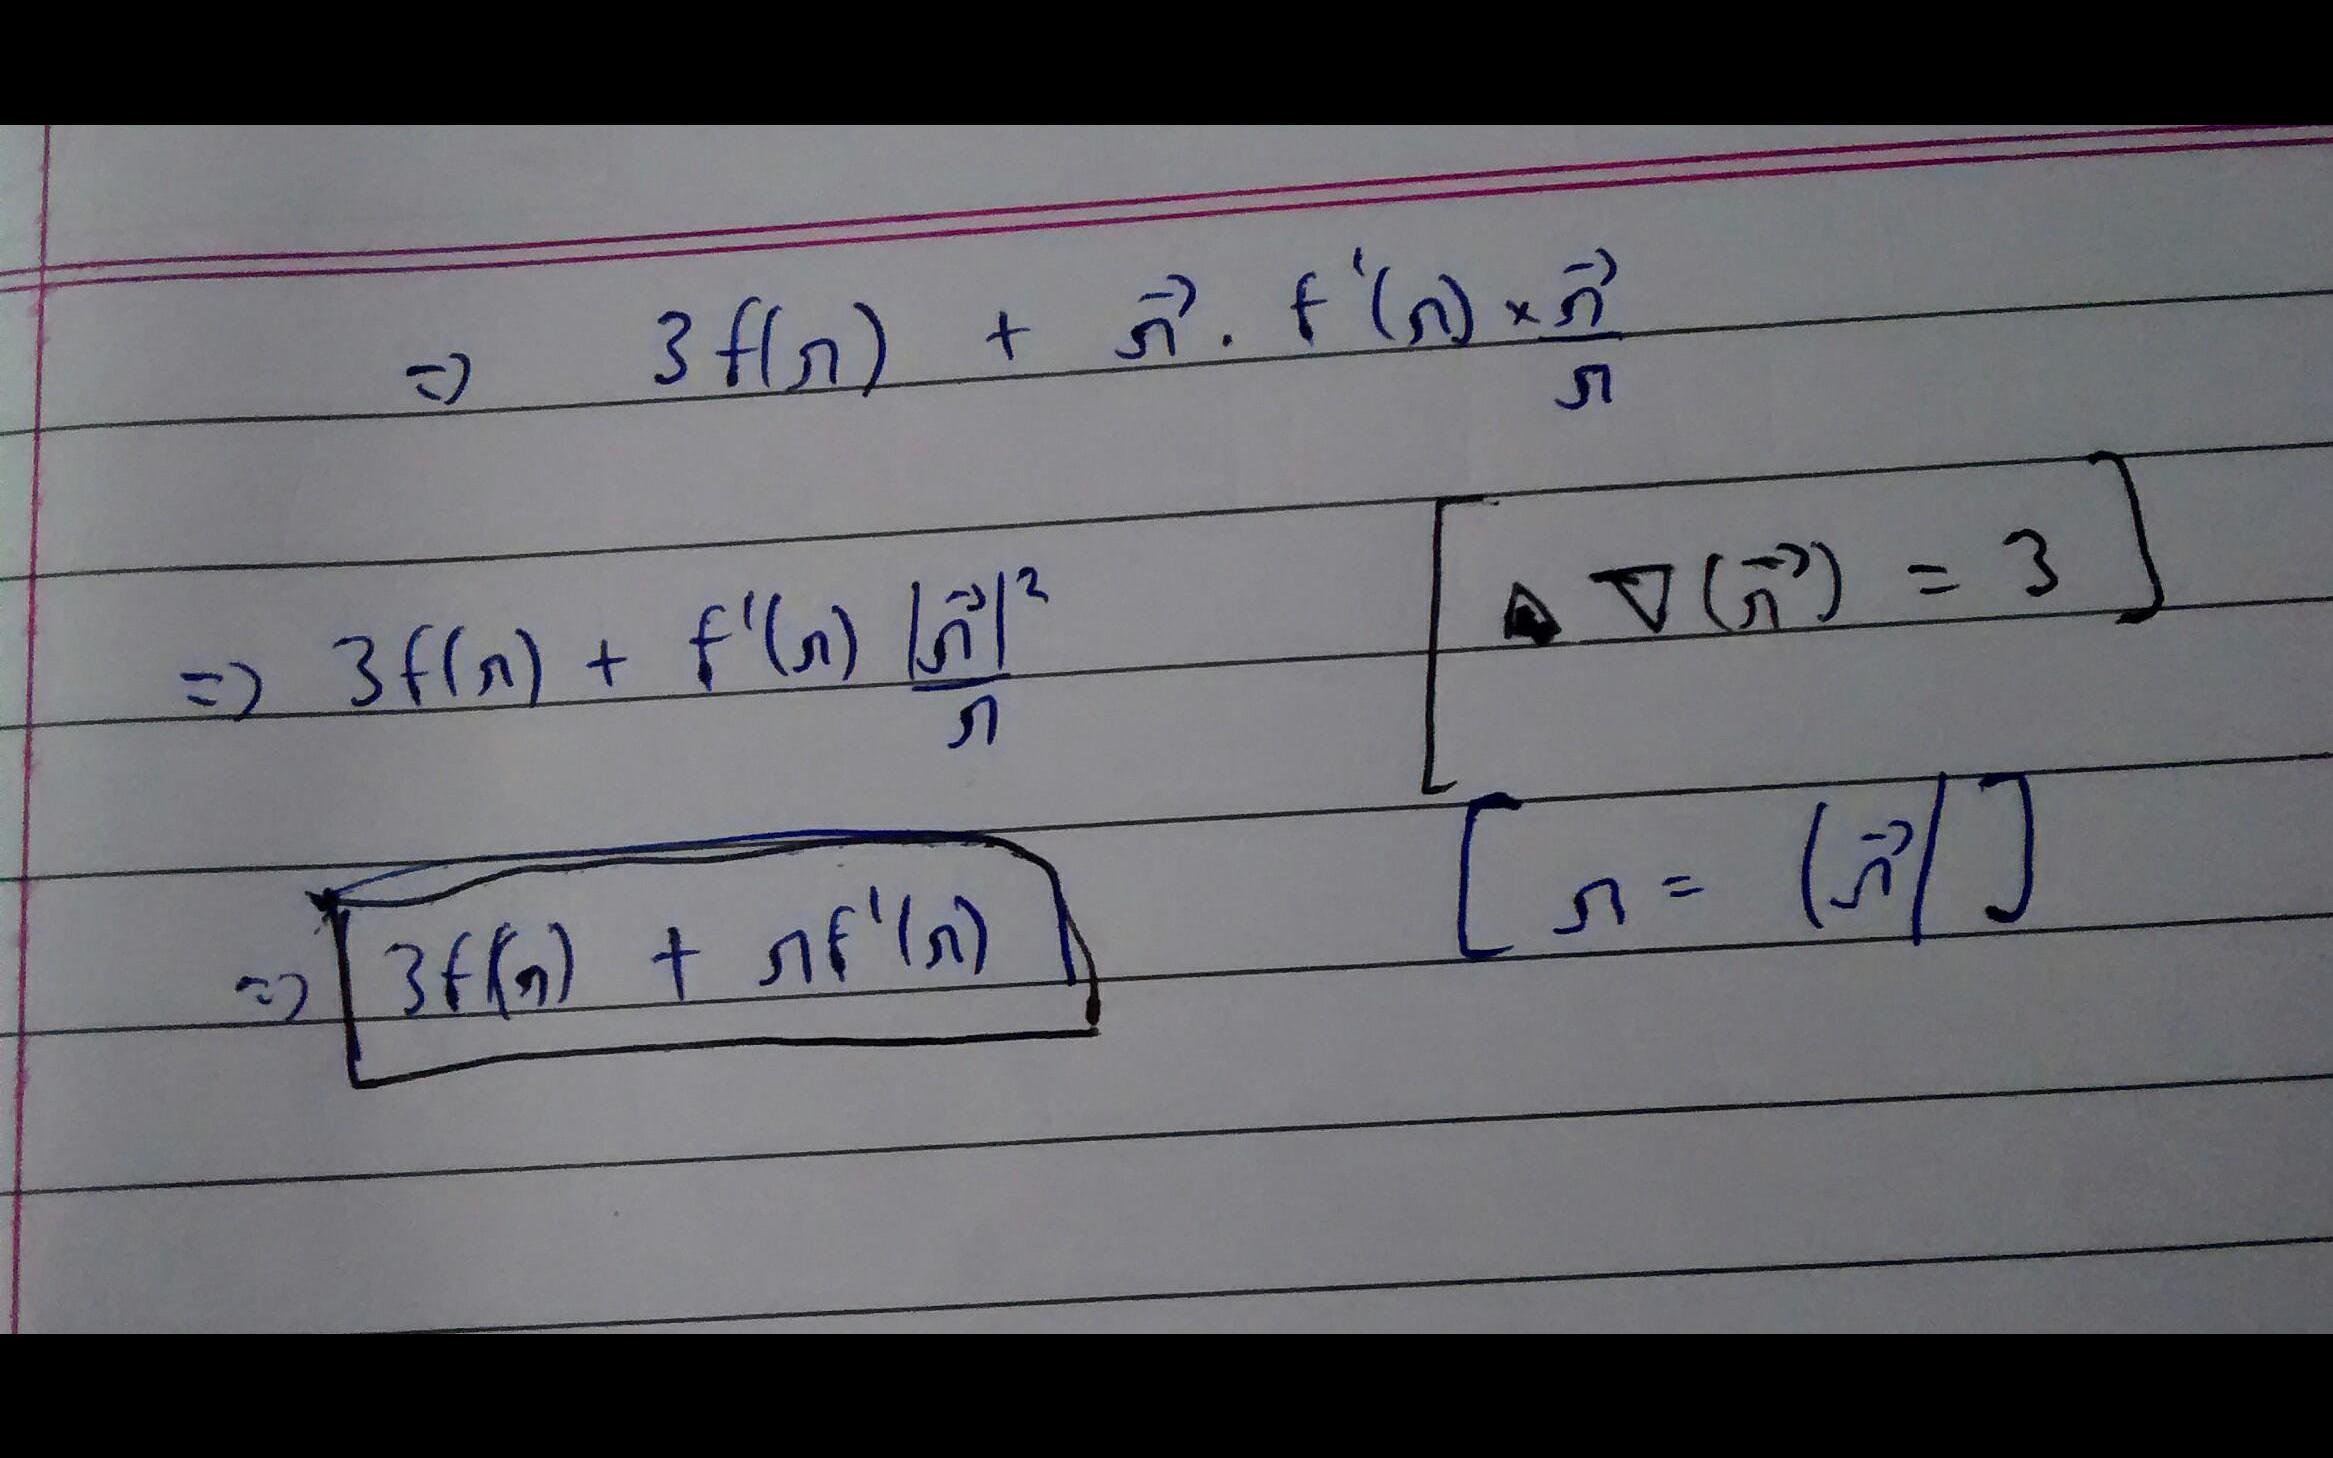 ⇒ 3f(r) + r⃗ . f'(r) × r⃗/r
[∇(r⃗) = 3]
⇒ 3f(r) + f'(r) |r⃗|²/r
[r = (r⃗|]
⇒ 3f(r) + rf'(r)